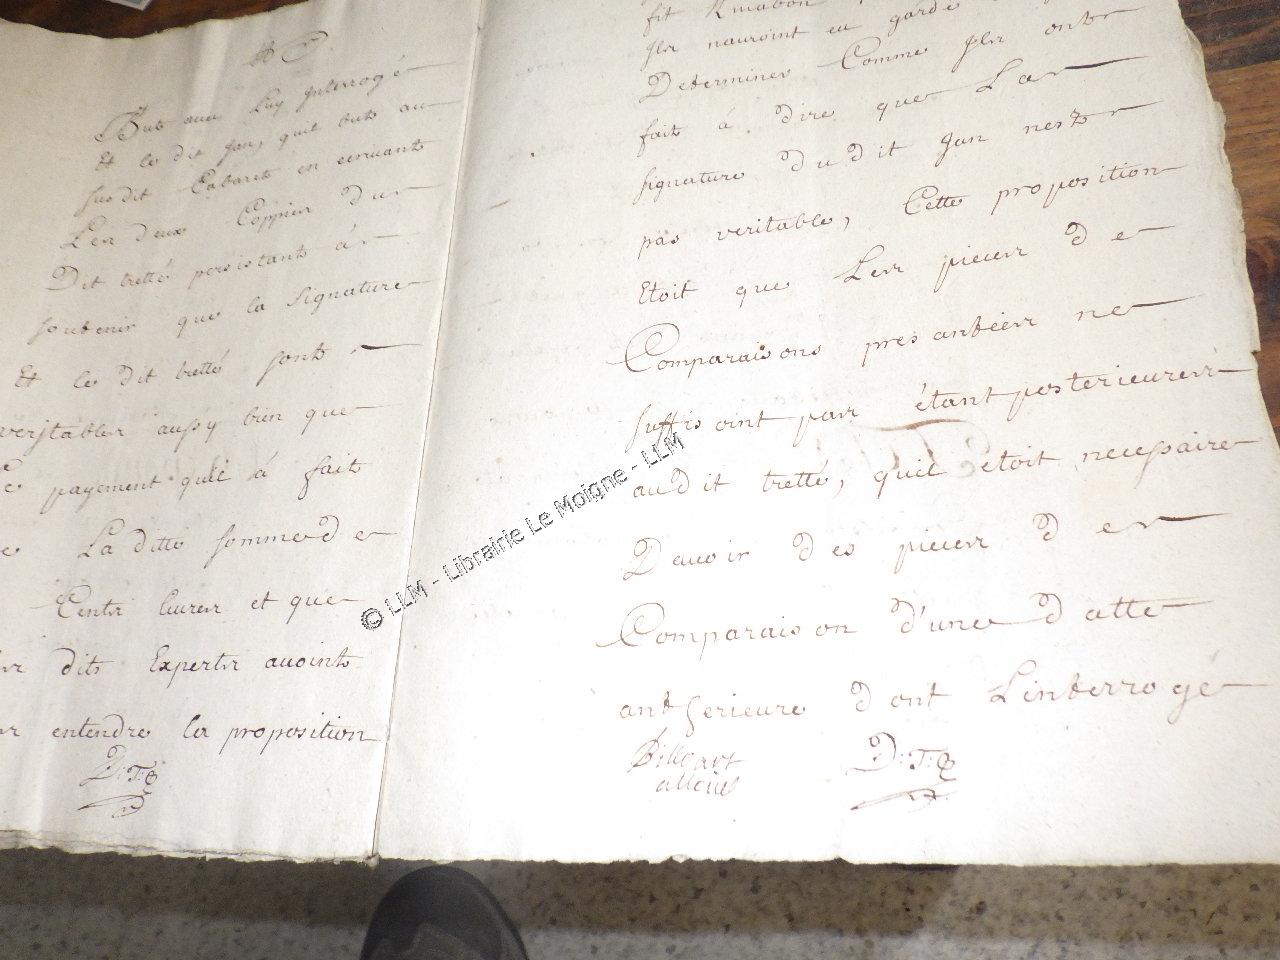 But avec Luy Interrogé
Et le dit Jan, quil but au
susdit Cabaret en ecrivant
Les deux Coppies du
Dit tretté persistant á
soutenir que la Signature
Et le dit tretté sont
veritables aussy bien que
payement quil á fait
La ditte somme de
Cents livres et que
dits Experts avoint
entendre la proposition
D:T:
fit
Ils nauroint eu garde
Determiner Comme Ils ont
fait á dire que La
signature du dit Jan nest
pas veritable, Cette proposition
Etoit que Les pieces de
Comparaisons presantées ne
suffisoint pas étant posterieures
audit tretté, quil etoit necessaire
Davoir des pieces de
Comparaison d'une datte
antserieure dont Linterrogé
Billoart
alloué
D:T:
© LLM - Librairie Le Moigne - LLM